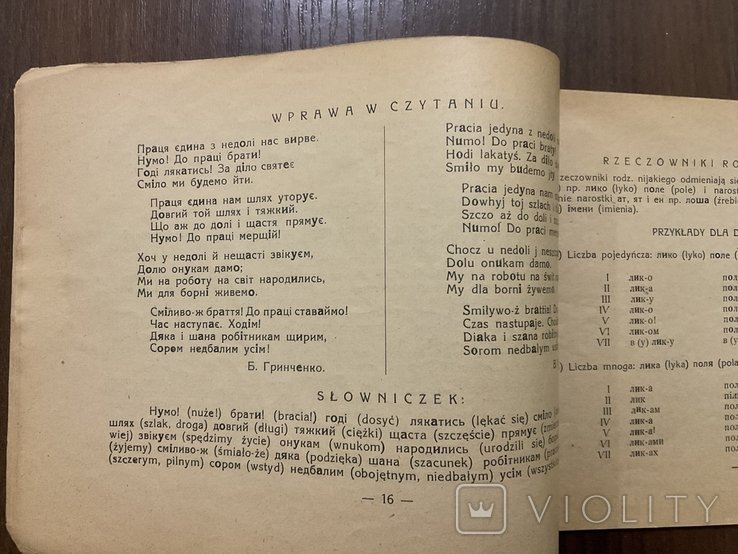 WPRAWA W CZYTANIU.
Праця єдина з недолі нас вирве.
Нумо! До праці брати!
Годі лякатись! За діло святеє
Сміло ми будемо йти.
Праця єдина нам шлях уторує.
Довгий той шлях і тяжкий.
Що аж до долі і щастя прямує.
Нумо! До праці мерщій!
Хоч у недолі й нещасті звікуєм,
Долю онукам дамо;
Ми на роботу на світ народились,
Ми для борні живемо.
Сміливо-ж браття! До праці ставаймо!
Час наступає. Ходім!
Дяка і шана робітникам щирим,
Сором недбалим усім!
Б. Гринченко.
Pracia jedyna z nedoli
Numo! Do praci braty!
Hodi lakatyś. Za diło
Smiło my budemo
Pracia jedyna nam
Dowhyj toj szlach i
Szczo aż do doli i
Numo! Do praci
Chocz u nedoli j
Dolu onukam damo.
My na robotu na świt
My dla borni żywemo
Smiływo-ż brattia!
Czas nastupaje.
Diaka i szana
Sorom nedbałym
SŁOWNICZEK:
Нумо! (nuże!) брати! (bracia!) годі (dosyć) лякатись (lękać się) сміло
шлях (szlak, droga) довгий (długi) тяжкий (ciężki) щастa (szczęście) прямує
wiej) звікуєм (spędzimy życie) онукам (wnukom) народились (urodzili się)
(żyjemy) сміливо-ж (śmiało-że) дяка (podzięka) шана (szacunek) робітникам
szczerym, pilnym) сором (wstyd) недбалим (obojętnym, niedbałym) усім
— 16 —
RZECZOWNIKI
rzeczowniki rodz. nijakiego odmieniają
) np. лико (łyko) поле (pole) i
narostki ат, ят i ен np. лоша
імени (imienia).
PRZYKŁADY DLA
) Liczba pojedyńcza: лико (łyko) поле
I лик-о
II лик-а
III лик-у
IV лик-о
V лик-о!
VI лик-ом
VII в (у) лик-у в (у)
) Liczba mnoga: лика (łyka) поля
I лик-а
II лик
III лик-ам
IV лик-а
V лик-а!
VI лик-ами
VII лик-ах
VIOLITY